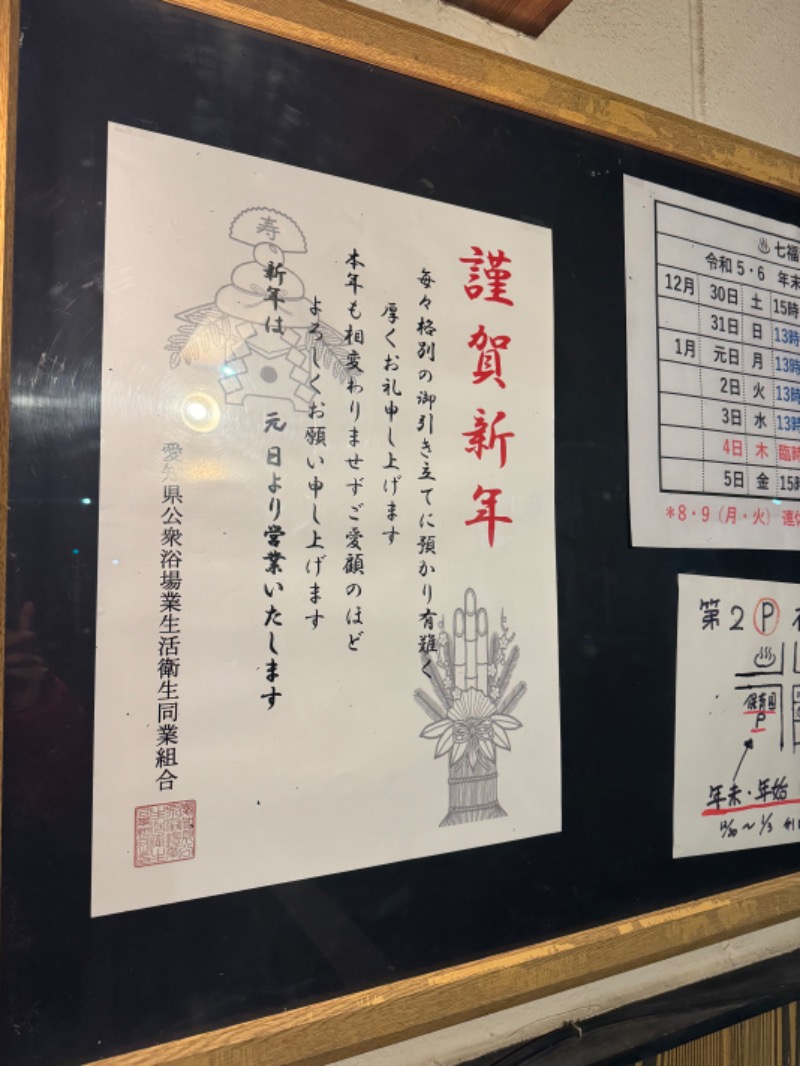 謹賀新年
毎々格別の御引き立てに預かり有難く
厚くお礼申し上げます
本年も相変わりませずご愛顧のほど
よろしくお願い申し上げます
新年は 元日より営業いたします
愛知県公衆浴場業生活衛生同業組合
寿
♨七福
令和5・6 年末
12月 30日 土 15時
31日 日 13時
1月 元日 月 13時
2日 火 13時
3日 水 13時
4日 木 臨時
5日 金 15時
*8・9(月・火) 連休
第2Ⓟ
♨
保育園
P
年末・年始
12/30～1/3